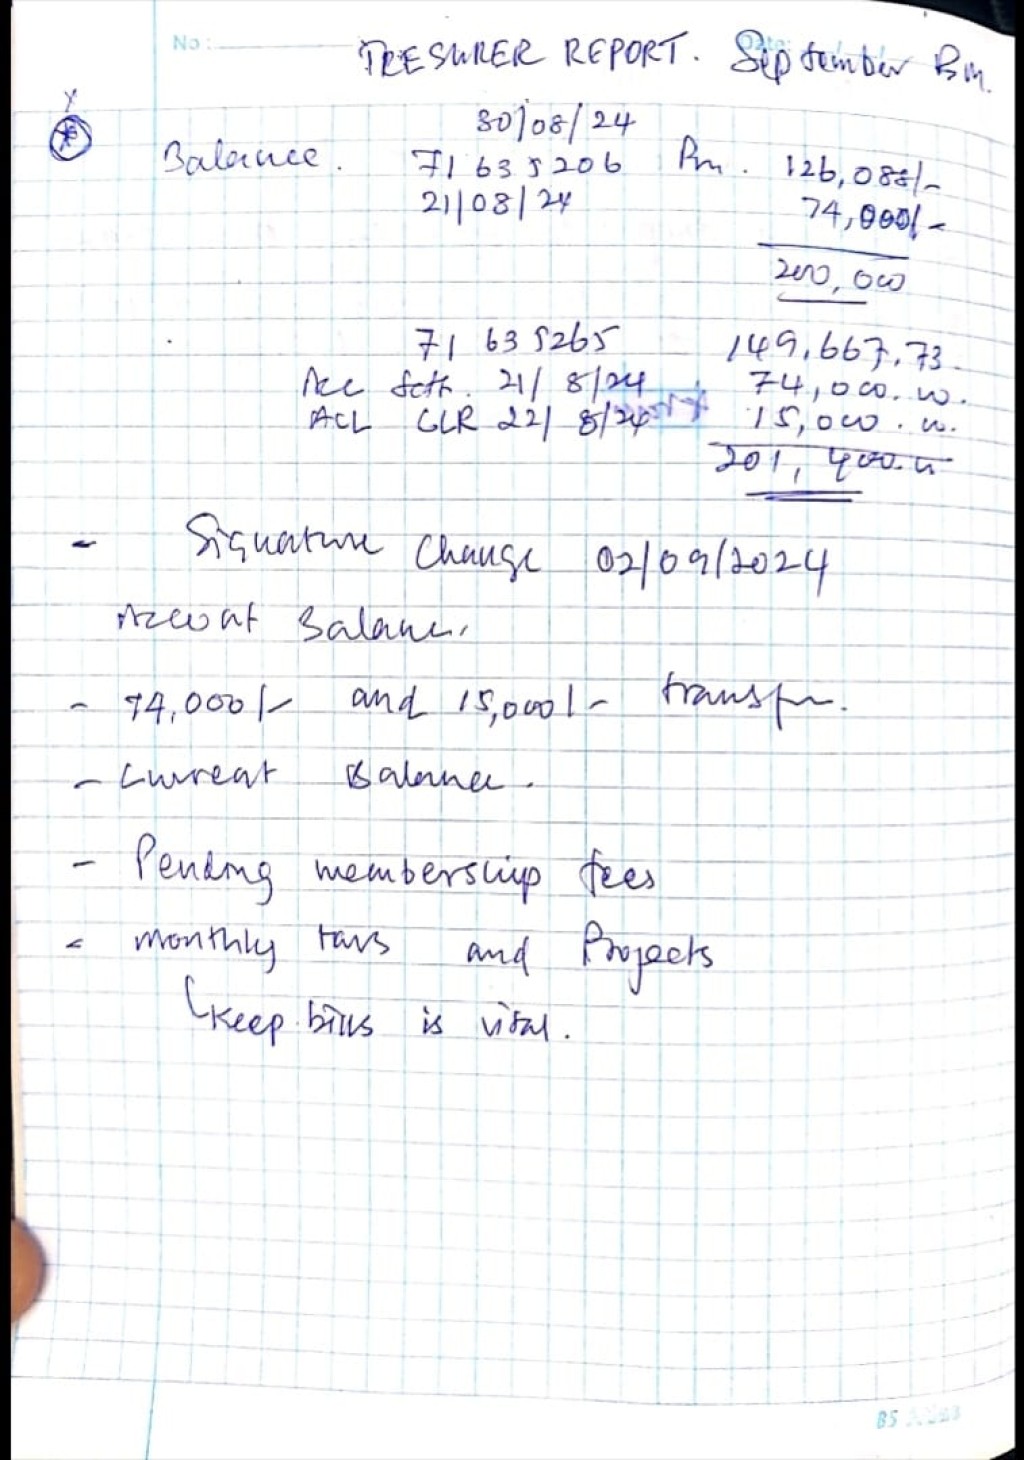 No:
TRESURER REPORT. September Bm.
30/08/24
Balance. 71635206 Pm. 126,088/-
21/08/24 74,000/-
200,000
71635265 149,667.73
Acc 21/8/24 74,000.00.
ACL CLR 22/8/24 15,000.00.
201,400.00
- Signature Change 02/09/2024
Account Balance.
- 74,000/- and 15,000/- transfer.
- Current Balance.
- Pending membership fees
- monthly and Projects
Keep bills is vital.
BS